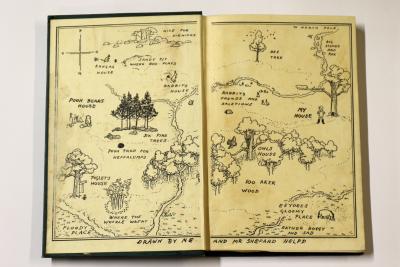 NICE FOR
PICNICKS
TO NORTH POLE
SANDY PIT
WHERE ROO PLAYS
KANGAS
HOUSE
BEE
TREE
BIG
STONES
AND
ROX
RABBITS
HOUSE
RABBITS
FRIENDS AND
RALETIONS
POOH BEARS
HOUSE
MY
HOUSE
SIX PINE
TREES
POOH TRAP FOR
HEFFALUMPS
OWLS
HOUSE
PIGLETS
HOUSE
100 AKER
WOOD
WHERE THE
WOOZLE WASNT
FLOODY
PLACE
EEYORES
GLOOMY
PLACE
RATHER BOGGY
AND SAD
DRAWN BY ME AND MR SHEPARD HELPD